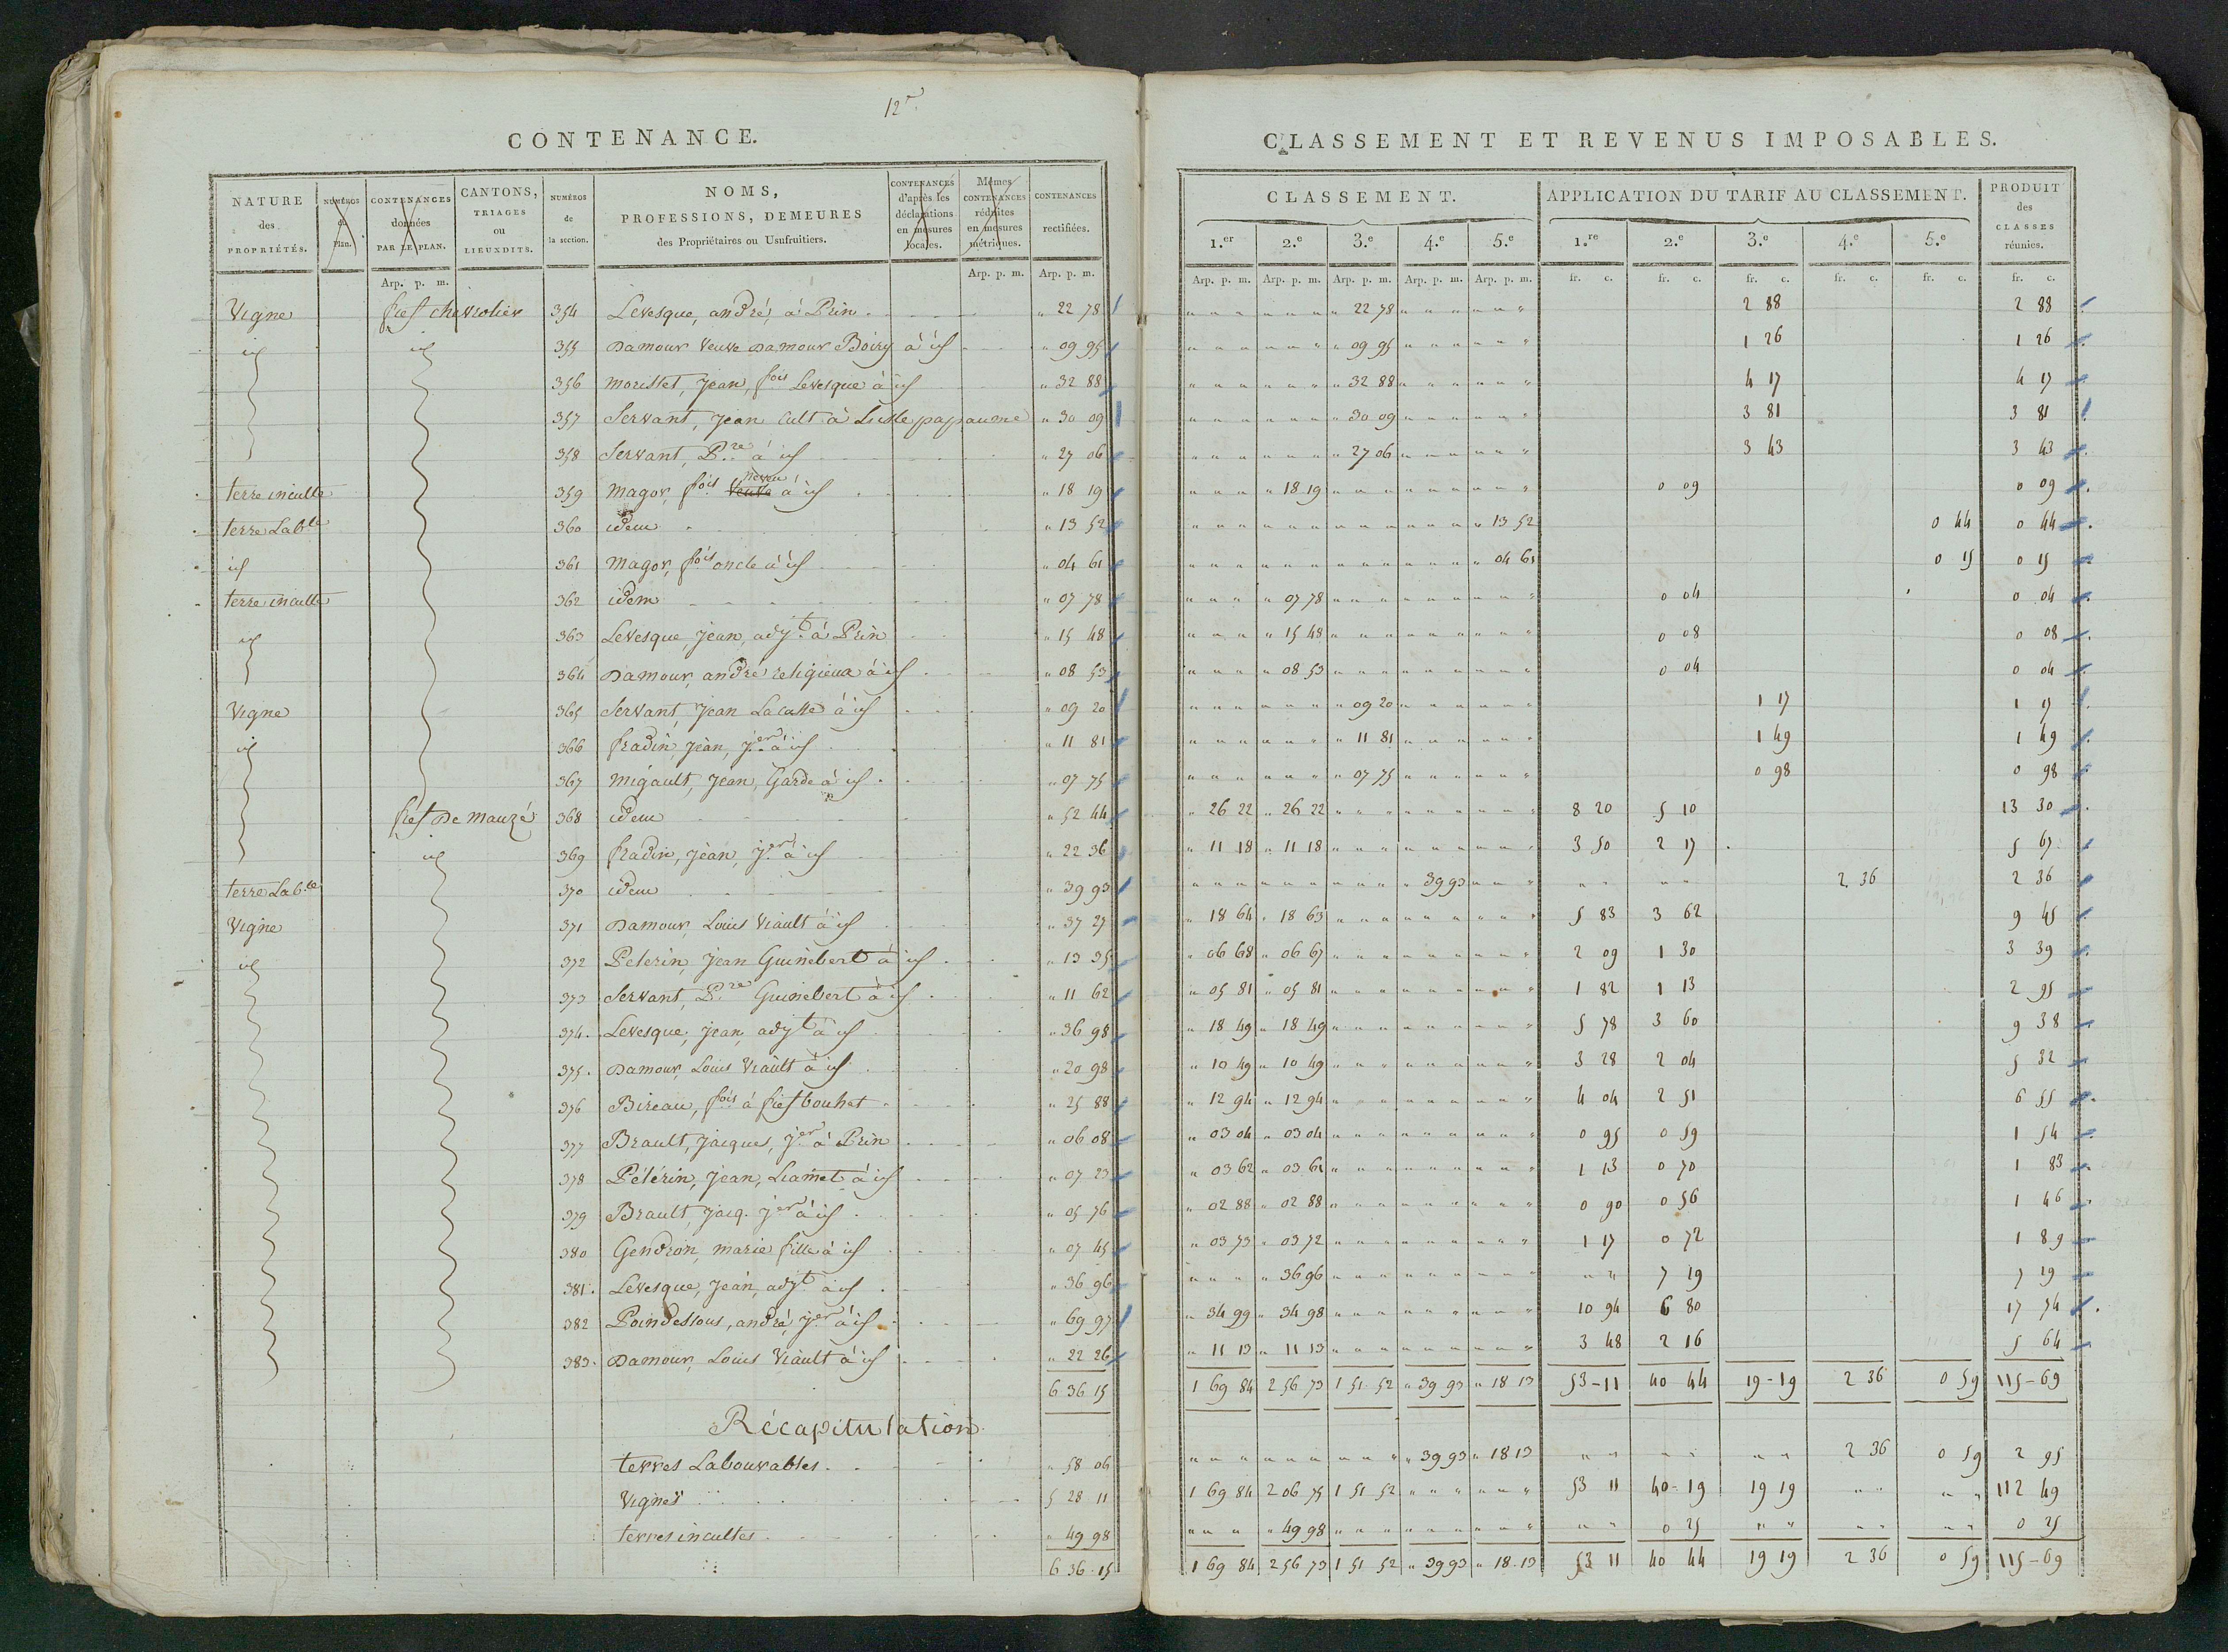 12e
CONTENANCE.
NATURE des PROPRIÉTÉS.
NUMÉROS du Plan.
CONTENANCES données PAR LE PLAN.
CANTONS, TRIAGES ou LIEUXDITS.
NUMÉROS de la section.
NOMS, PROFESSIONS, DEMEURES des Propriétaires ou Usufruitiers.
CONTENANCES d'après les déclarations en mesures locales.
Mêmes CONTENANCES réduites en mesures métriques.
CONTENANCES rectifiées.
Arp. p. m. Arp. p. m. Arp. p. m.
Vigne fief chevrolier 354 Levesque, andré, à Prin " 22 78
id id 355 Damour Veuve Damour Boiry à id " 09 95
356 morisset, Jean, fois Levesque à id " 32 88
357 Servant, Jean Cult à Lisle papaume " 30 09
358 Servant, Pre à id " 27 06
terre inculte 359 Magor, fois Veuve neveu à id " 18 19
terre Lable 360 idem " 13 52
id 361 Magor, fois oncle à id " 04 61
terre inculte 362 idem " 07 78
id 363 Levesque, Jean, adjt à Prin " 15 48
364 Damour, andré religieux à id " 08 53
Vigne 365 Servant, Jean Lacasse à id " 09 20
id 366 fradin, Jean, jer à id " 11 81
367 Migault, Jean, Garde à id " 07 75
fief De Mauzé 368 idem " 52 44
id 369 fradin, Jean, jer à id " 22 36
terre Lable 370 idem " 39 93
Vigne 371 Damour, Louis Viault à id " 37 27
id 372 Pelerin, Jean Guinebert à id " 13 35
373 Servant, Pre Guinebert à id " 11 62
374. Levesque, Jean, adjt à id " 36 98
375. Damour, Louis Viault à id " 20 98
376 Bireau, fois à fiefbouhet " 25 88
377 Brault, Jacques, jer à Prin " 06 08
378 Pélérin, Jean, Liamet à id " 07 23
379 Brault, Jacq. jer à id " 05 76
380 Gendron, marie fille à id " 07 45
381. Levesque, Jean, adjt à id " 36 96
382 Poindessous, andré, jer à id " 69 97
383. Damour, Louis Viault à id " 22 26
6 36 15
Récapitulation
terres Labourables " 58 06
Vignes 5 28 11
terres incultes " 49 98
6 36 15
CLASSEMENT ET REVENUS IMPOSABLES.
CLASSEMENT. APPLICATION DU TARIF AU CLASSEMENT. PRODUIT des CLASSES réunies.
1.er 2.e 3.e 4.e 5.e 1.re 2.e 3.e 4.e 5.e
Arp. p. m. Arp. p. m. Arp. p. m. Arp. p. m. Arp. p. m. fr. c. fr. c. fr. c. fr. c. fr. c. fr. c.
" 22 78 2 88 2 88
" 09 95 1 26 1 26
" 32 88 4 17 4 17
" 30 09 3 81 3 81
" 27 06 3 43 3 43
" 18 19 0 09 0 09
" 13 52 0 44 0 44
" 04 61 0 15 0 15
" 07 78 0 04 0 04
" 15 48 0 08 0 08
" 08 53 0 04 0 04
" 09 20 1 17 1 17
" 11 81 1 49 1 49
" 07 75 0 98 0 98
" 26 22 " 26 22 8 20 5 10 13 30
" 11 18 " 11 18 3 50 2 17 5 67
" 39 93 2 36 2 36
" 18 64 " 18 63 5 83 3 62 9 45
" 06 68 " 06 67 2 09 1 30 3 39
" 05 81 " 05 81 1 82 1 13 2 95
" 18 49 " 18 49 5 78 3 60 9 38
" 10 49 " 10 49 3 28 2 04 5 32
" 12 94 " 12 94 4 04 2 51 6 55
" 03 04 " 03 04 0 95 0 59 1 54
" 03 62 " 03 61 1 13 0 70 1 83
" 02 88 " 02 88 0 90 0 56 1 46
" 03 73 " 03 72 1 17 0 72 1 89
" 36 96 7 19 7 19
" 34 99 " 34 98 10 94 6 80 17 74
" 11 13 " 11 13 3 48 2 16 5 64
1 69 84 2 56 73 1 51 52 " 39 93 " 18 13 53-11 40 44 19-19 2 36 0 59 115-69
" 39 93 " 18 13 2 36 0 59 2 95
1 69 84 2 06 75 1 51 52 53 11 40-19 19 19 112 49
" 49 98 0 25 0 25
1 69 84 2 56 73 1 51 52 " 39 93 " 18-13 53 11 40 44 19 19 2 36 0 59 115-69